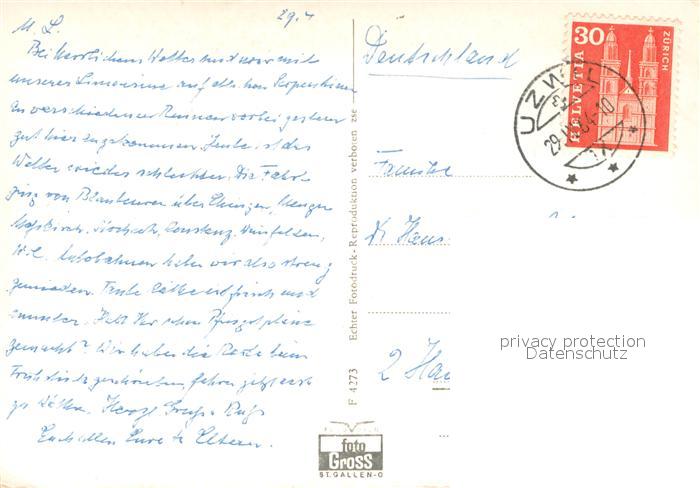 29.4
M. L.
Bei herrlichem Wetter sind wir mit
unserer Limousine auf alten Serpentinen
an verschiedenen Ruinen vorbei gestern
gut hier angekommen. Heute ist das
Wetter wieder schlechter. Die Fahrt
ging von Blaubeuren über Ehingen, Mengen
Meßkirch, Stockach, Konstanz, Weinfelden,
Wil. Autobahnen haben wir also streng
gemieden. Tante frisch und
munter. Habt Ihr schon Pfingstpläne
gemacht? Wir haben die Karte beim
Frühstück geschrieben, fahren jetzt erst
zu Herzl. Grüße
Euch allen Eure Eltern.
F 4273 Echter Fotodruck - Reproduktion verboten zse
foto
Gross
ST. GALLEN-O
Deutschland
30
HELVETIA
ZÜRICH
UZWIL
29.
-10
Familie
Dr Hans
2 Ha
privacy protection
Datenschutz